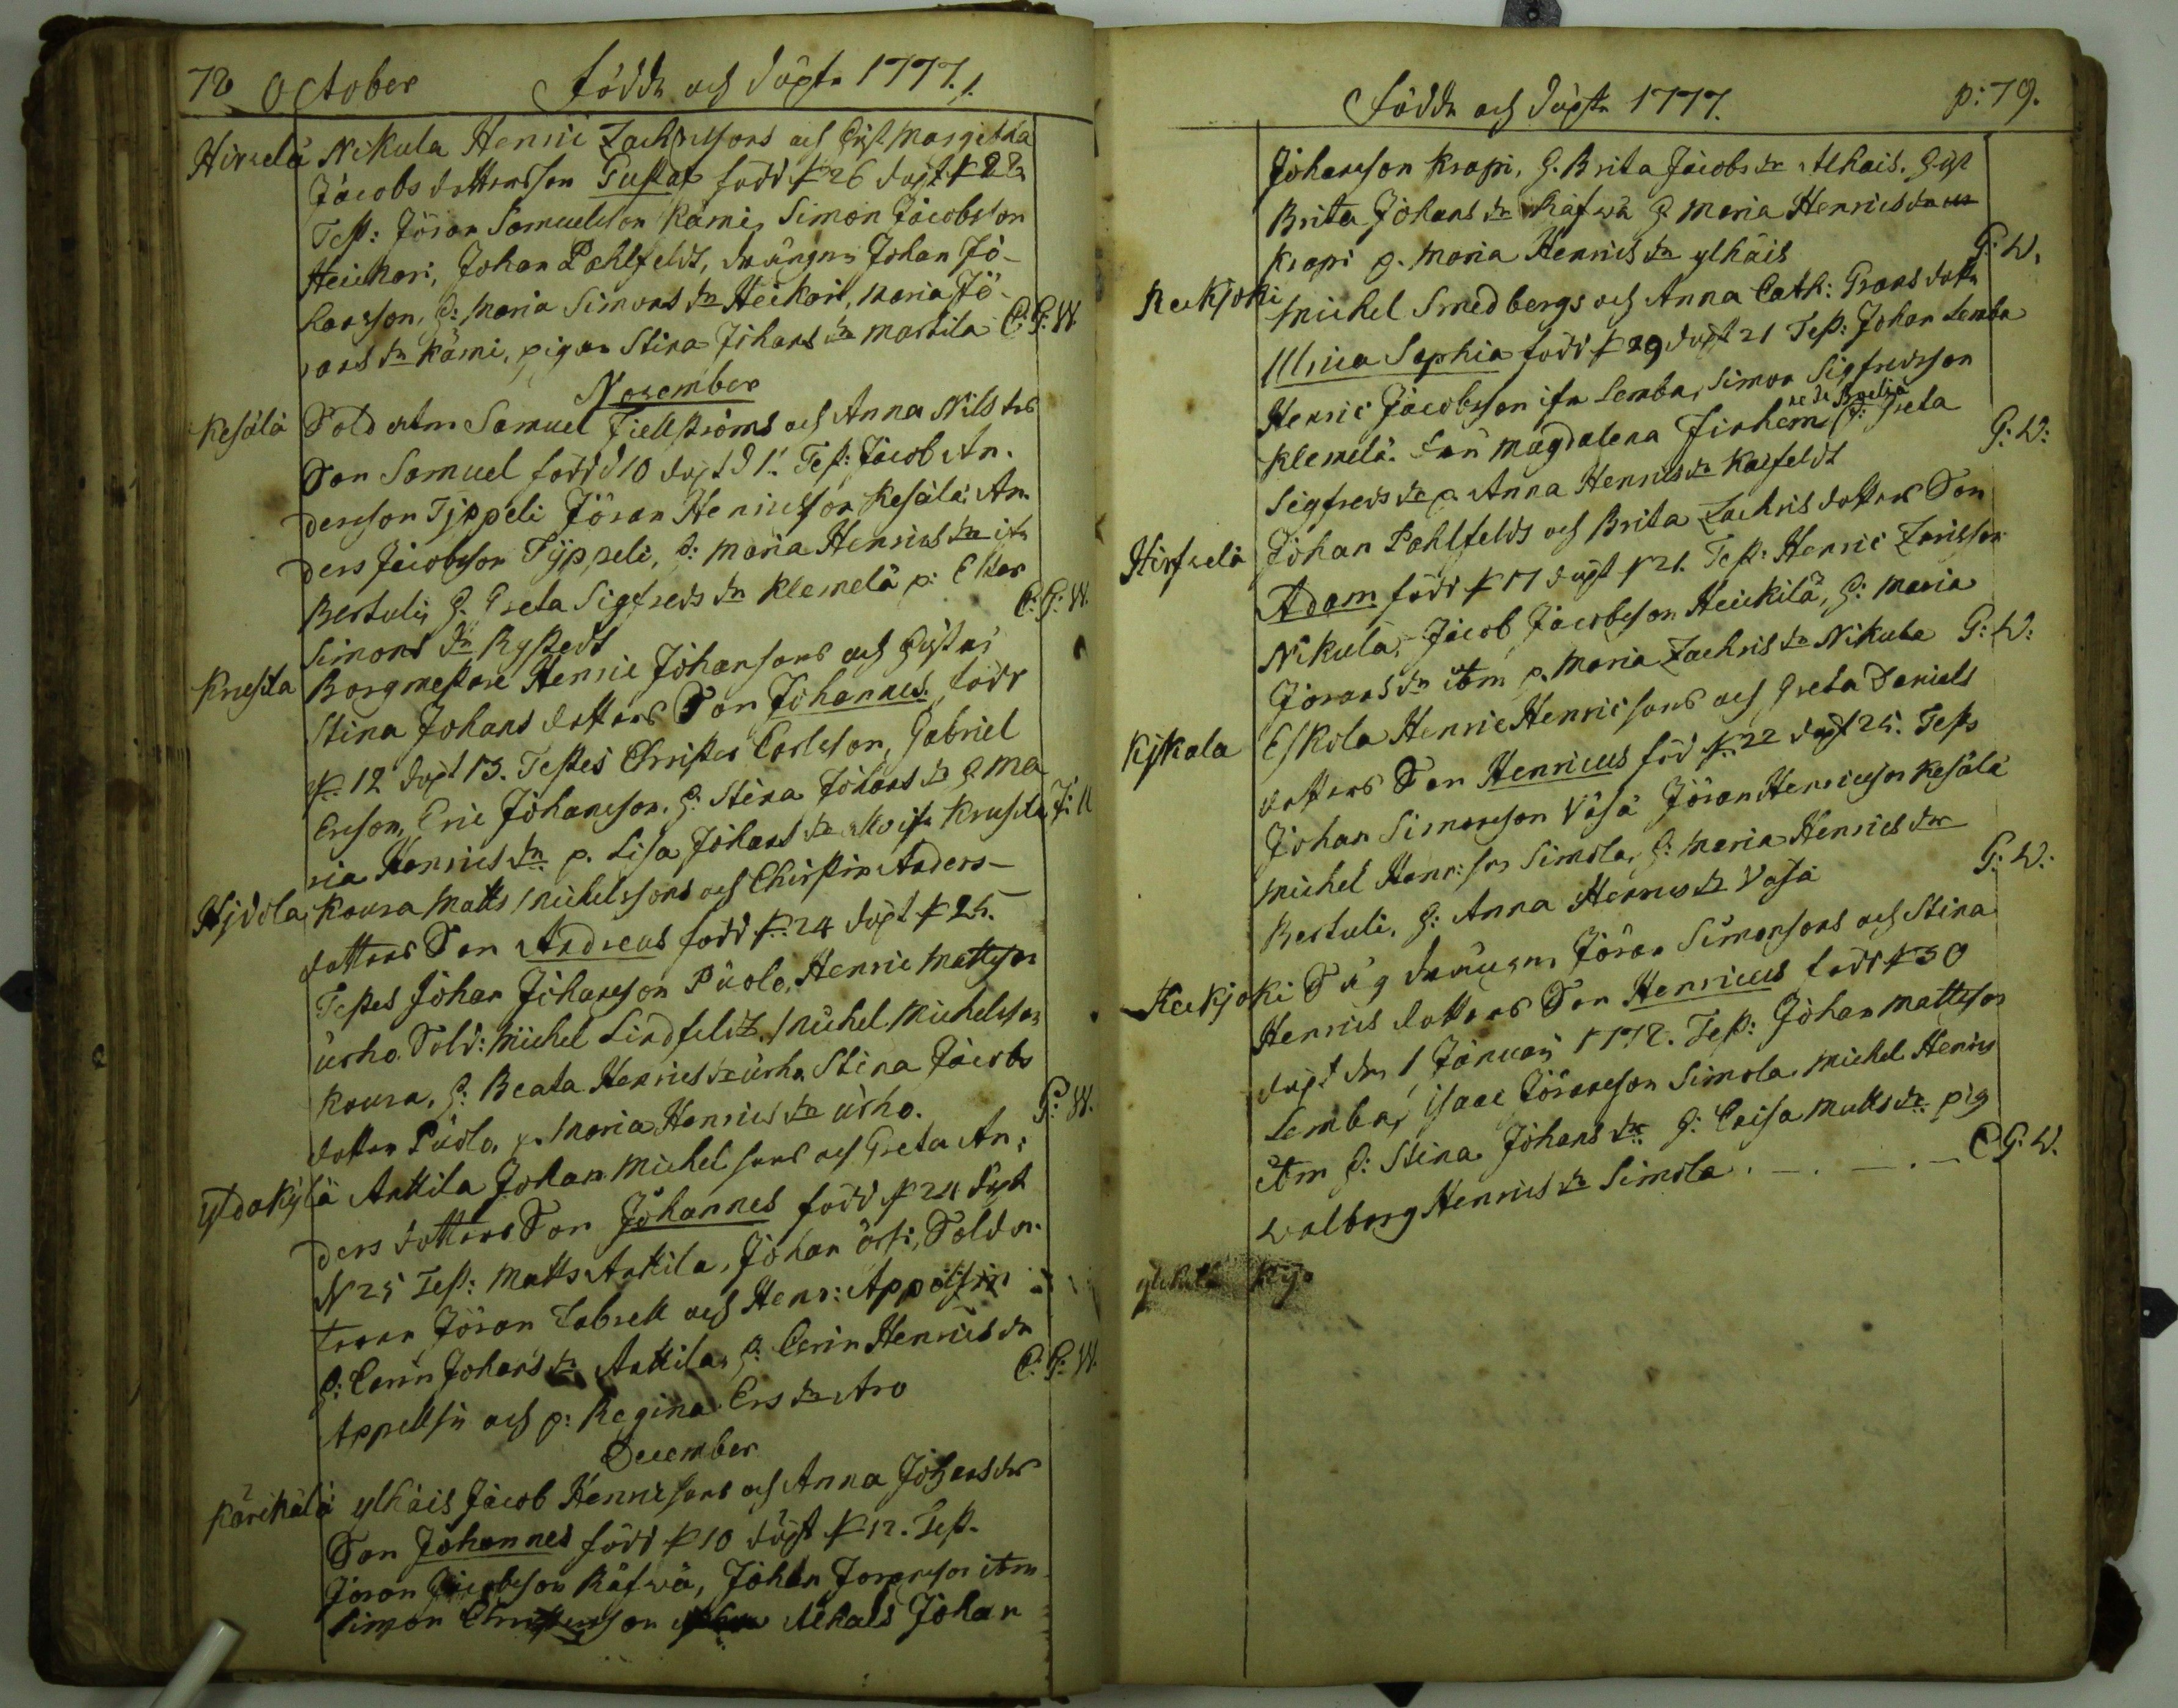 78 October Födde och döpte 1777.
Hirvelä Nikula Henric Zachrissons och Hust Margetha
Jacobs dotters son Gustaf född d 26 döpt d 28
Test: Jöran Samuelsson Kämi, Simon Jacobsson
Heickari, Johan Pahlfeldt, drängen Johan Jö-
hansson, h: Maria Simons dr Heikari, Maria Jö-
rans dr Kämi, pigan Stina Johans dr Martila C: G: W.
November
Kesälä Soldaten Samuel Fiellströms och Anna Nils drs
Son Samuel född d 10 döpt d 1. Test: Jacob An-
dersson Typpeli Jöran Henricsson Kesälä, An-
ders Jacobsson Typpeli, h: Maria Henrics dr ifr
Bertuli, h. Greta Sigfreds dr Klemelä p: Ester
Simons dr Rystedt C: G: W.
Krusila Borgmestare Henric Johanssons och Hustrus
Stina Johans dotters Son Johannes född
d. 12 döpt 13. Testes Christer Carlsson, Gabriel
Ersson, Eric Johansson. h: Stina Johans dr h. Ma
ria Henrics dr p. Lisa Johans dr alla ifr Krusila J: U
Hjdola Koura Matts Michelssons och Chirstin Anders-
dotters Son Andreas född d. 24 döpt d 25.
Testes Johan Johansson Puolo, Henric Mattsson
urho. Sold: Michel Lindfeldt, Michel Michelsson
Koura, h: Beata Henrics dr urho, Stina Jacobs
dotter Puolo, p. Maria Henrics dr urho. G: W.
yldakylä Anttila Johan Michelsons och Greta An-
ders dotters Son Johannes född d 24 döpt
d 25 Test: Matts Anttila, Johan örsi, Solda-
teran Jöran Zabrell och Henr: Appelsin
h: Carin Johans dr Anttila, h: Carin Henrics dr
Appellsin och p: Regina Ers dr Aro C: G: W.
December
Kärikälä ylhäis Jacob Henricsons och Anna Johans drs
Son Johannes född d 10 döpt d 12. Test.
Jöran Jacobsson Räfwä, Johan Joransson itm
Simon Christersson Alhais Johan
Födde och döpte 1777. p: 79.
Johansson Krapi, h. Brita Jacobs dr Alhais. hust
Brita Johans dr Räfwä h Maria Henrics dr
Krapi p. Maria Henrics dr ylhäis G: W.
Keckjoki Michel Smedbergs och Anna Cath: Grans dotter
Ulrica Sophia född d 29 döpt 21 Test: Johan Lemba
Henric Jacobsson ifr Lemba, Simon Sigfredsson
Klemelä. Fru Magdalena Firhem h: Greta
Sigfreds dr p Anna Henrics dr Kaxfeldt G: W:
Hirfvelä Johan Pahlfelds och Brita Zachris dotters Son
Adam född d 17 döpt d 21. Test: Henric Zarisson
Nikula, Jacob Jacobsson Heickilä, h: Maria
Jorans dr itm p. Maria Zachris dr Nikula G: W:
Kjkala Eskola Henric Henricsons och Greta Daniels
dotters Son Henricus föd d. 22 döpt 25. Test
Johan Simonsson Väsä Jöran Henricsson Kesälä
Michel Henr: son Simola, h: Maria Henrics dr
Bertuli, h: Anna Henrics dr Vasa G: W:
Keckjoki Såg drängen Jöran Simonsons och Stina
Henrics dotters Son Henricus född d 30
döpt den 1 Januarii 1778. Test: Johan Mattsson
Lemba, Isaac Jöransson Simola Michel Henrics
itm h: Stina Johans dr h: Caisa Matts dr pig
Walborg Henrics dr Simola . — . — . — C G: W.